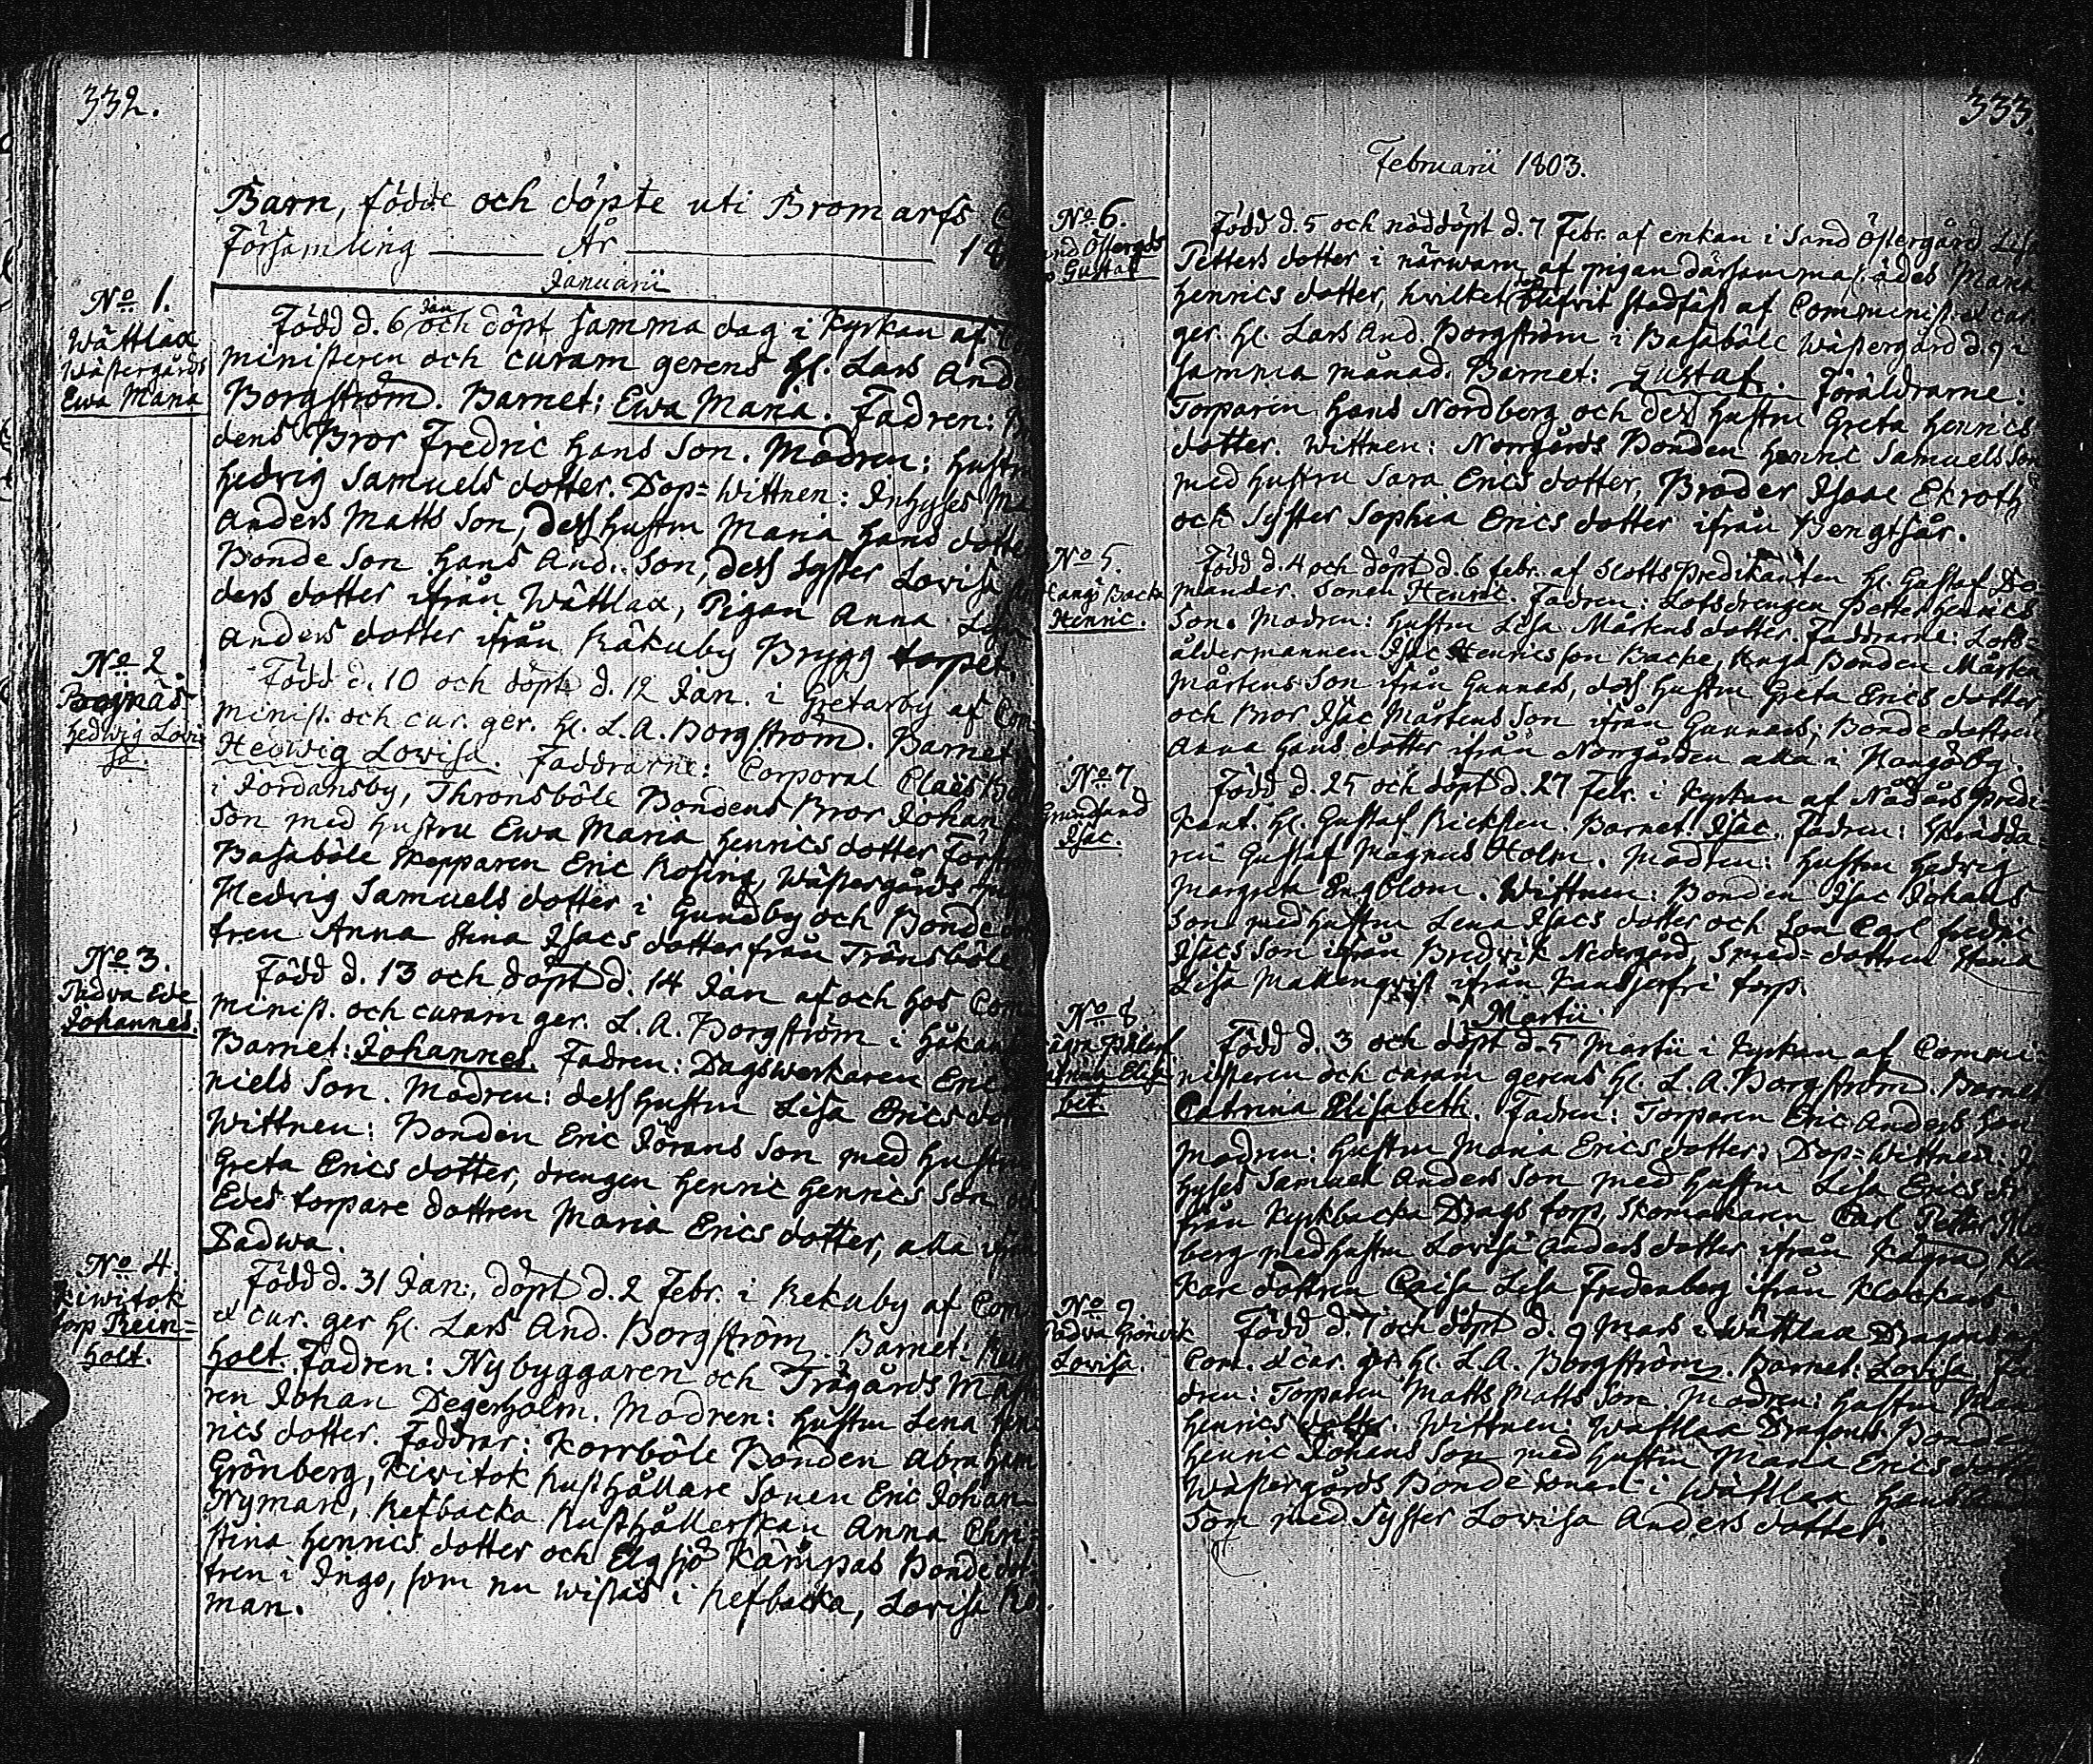 332.
Barn, födde och döpte uti Bromarfs
Församling ——— År ——— 18
Januarii
No 1.
Wättlax
Wästergårds
Ewa Maria
Född d. 6 Jan och döpt samma dag i Kyrkan af
ministeren och curam gerens H. Lars And
Borgström. Barnet: Ewa Maria. Fadren:
dens Bror Fredric Hans Son. Modren: Hustru
Hedvig Samuels dotter. Dop=Wittnen: Inhyses
Anders Matts Son, dess Hustru Maria Hans dotter
Bonde Son Hans And. Son, dess Syster Lovisa
ders dotter ifrån Wättlax, Pigan Anna Lisa
Anders dotter ifrån Råkuby Brygg torpet.
No 2.
Bojnäs
Hedwig Lovi
sa.
Född d. 10 och döpt d. 12 Jan. i Gretarby af Com
minist. och cur. ger. H. L. A. Borgström. Barnet
Hedwig Lowisa. Faddrarne: Corporal Claës
i Jordansby, Thronsböle Bondens Bror Johan
Son med Hustru Ewa Maria Henrics dotter
Basaböle Skepparen Eric Rosing, Wästergårds
Hedvig Samuels dotter i Gundby och Bonde
tren Anna Stina Isacs dotter från Trönsböle
No 3.
Padva Ede
Johannes.
Född d. 13 och döpt d. 14 Jan af och hos Com
minist. och curam ger. L. A. Borgström i Håkan
Barnet: Johannes. Fadren: Dagswerkaren Eric
niels Son. Modren: dess Hustru Lisa Erics
Wittnen: Bonden Eric Jörans Son med Hustru
Greta Erics dotter, drengen Henric Henrics Son
Edes torpare dottren Maria Erics dotter, alla
Padwa.
No 4.
Kiwitok
torp Rein=
holt.
Född d. 31 Jan:, döpt d. 2 Febr. i Rekuby af Com
& cur. ger H. Lars And. Borgström. Barnet: Rein
holt. Fadren: Nybyggaren och Trägårds Mäst
ren Johan Degerholm. Modren: Hustru Lena Hen
rics dotter. Faddrar: Korrböle Bonden Abraham
Grönberg, Kiwitok Rusthållare Sonen Eric Johan
Nyman, Refbacka Rusthållerskan Anna Chri=
stina Henrics dotter och Elgsjö Kämpas Bonde dot
tren i Ingo, som nu wistas i Refbacka, Lovisa
man.
333.
Februarii 1803.
No 6.
Sand Östergds
Gustaf
Född d. 5 och nöddöpt d. 7 Febr. af enkan i Sand Östergård Lisa
Petters dotter i närwaro af pigan därsammastädes Maria
Henrics dotter, hvilket blifvit stadfäst af Comminist. & cur
ger. H. Lars And. Borgström i Basaböle Wästergård d. 9 i
samma månad. Barnet: Gustaf. Föräldrarne:
Torparen Hans Nordberg och dess Hustru Greta Henrics
dotter. Wittnen: Norrgårds Bonden Henric Samuels Son
med Hustru Sara Erics dotter, Broder Isaac Ekroth
och Syster Sophia Erics dotter ifrån Bengtsår.
No 5.
Hangö Backa
Henric.
Född d. 4 och döpt d. 6 febr. af Slotts Predikanten H. Gustaf
mander. Sonen Henric. Fadren: Lotsdrengen Petter Henrics
Son. Modren: Hustru Lisa Mårtens dotter. Faddrarne: Lots=
åldermannen Isac Henricsson Backe, unga Bonden Mårten
Mårtens Son ifrån Gunnars, dess Hustru Greta Erics dotter,
och Bror Isac Mårtens Son ifrån Gunnars, Bonde dottren
Anna Hans dotter ifrån Norrgården alla i Hangöby.
No 7.
Grundsand
Isac.
Född d. 25 och döpt d. 27 Febr. i Kyrkan af Nådårs Predi=
kant. H. Gustaf Ricksten. Barnet. Isac. Fadren: Skrädda=
ren Gustaf Magnus Holm. Modren: Hustru Hedwig
Margreta Engblom. Wittnen: Bonden Isac Johans
Son med Hustru Lena Isacs dotter och Son Carl Fredric
Isacs Son ifrån Bredwik Nedergård, Smed=dottren Stina
Lisa Malmqvist ifrån torp.
Martii
No 8
Catrina Elisa
bet.
Född d. 3 och döpt d. 5 Martii i Kyrkan af Commi=
nisteren och curam gerens H. L. A. Borgström. Barnet
Catrina Elisabeth. Fadren: Torparen Eric Anders Son
Modren: Hustru Maria Erics dotter. Dop=Wittnen. In
hyses Samuel Anders Son med Hustru Lisa Erics dr
från Kyrkbacka Drags torp, Skomakaren Carl Petter
berg med Hustru Lovisa Anders dotter ifrån Kägra, Kloc
kare dottren Caisa Lisa Fredenberg ifrån Klockars.
No 9.
Padva Grönvik
Lovisa.
Född d. 7 och döpt d. 9 Mars i Wättlax Dragons af
Com. & cur. ger. H. L. A. Borgström. Barnet: Lovisa Fa
dren: Torparen Matts Matts Son. Modren: Hustru Maria
Henrics dotter. Wittnen: Wättlax Dragons Bonden
Henric Johans Son med Hustru Maria Erics dotter
Wästergårds Bonde Sonen i Wättlax Hans And
Son med Syster Lovisa Anders dotter.